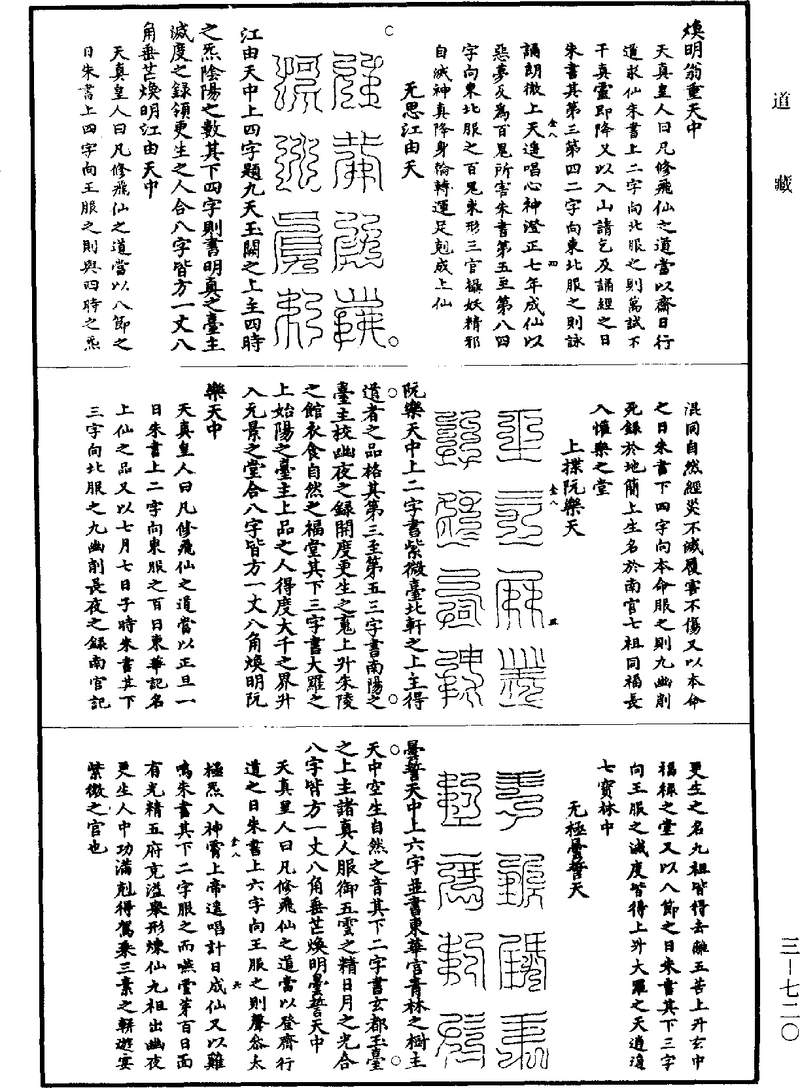 道藏
煥明翁重天中
天真皇人曰凡修飛仙之道當以齋日行
道求仙朱書上二字向北服之則萬試不
干真靈即降又以入山請乞及誦經之日
朱書其第三第四二字向東北服之則詠
誦朗徹上天遙唱心神澄正七年成仙以
惡夢及為百鬼所害朱書第五至第八四
字向東北服之百鬼束形三官攝妖精邪
自滅神真降身輪轉運足剋成上仙
无思江由天
江由天中上四字題九天玉闕之上主四時
之炁陰陽之數其下四字則書明真之臺主
滅度之錄領更生之人合八字皆方一丈八
角垂芒煥明江由天中
天真皇人曰凡修飛仙之道當以八節之
日朱書上四字向王服之則與四時之炁
混同自然經災不滅履害不傷又以本命
之日朱書下四字向本命服之則九幽削
死錄於地簡上生名於南宮七祖同福長
入懽樂之堂
上揲阮樂天
阮樂天中上二字書紫微臺北軒之上主得
道者之品格其第三至第五三字書南陽之
臺主校幽夜之錄開度更生之䰟上升朱陵
之館衣食自然之福堂其下三字書大羅之
上始陽之臺主上品之人得度大千之界升
入无景之堂合八字皆方一丈八角煥明阮
樂天中
天真皇人曰凡修飛仙之道當以正旦一
日朱書上二字向東服之百日東華記名
上仙之品又以七月七日子時朱書其下
三字向北服之九幽削長夜之錄南宮記
更生之名九祖皆得去離五苦上升玄中
福祿之堂又以八節之日朱書其下三字
向王服之滅度皆得上升大羅之天逍遙
七寶林中
无極曇誓天
曇誓天中上六字並書東華宮青林之樹主
天中空生自然之音其下二字書玄都玉臺
之上主諸真人服御五雲之精日月之光合
八字皆方一丈八角垂芒煥明曇誓天中
天真皇人曰凡修飛仙之道當以登齋行
道之日朱書上六字向王服之則聲合太
極炁入神霄上帝遙唱計日成仙又以雞
鳴朱書其下二字服之而嚥雲芽百日面
有光精五府充溢舉形煉仙九祖出幽夜
更生人中功滿剋得駕乘三素之輧遊宴
紫微之宮也
三—七二〇